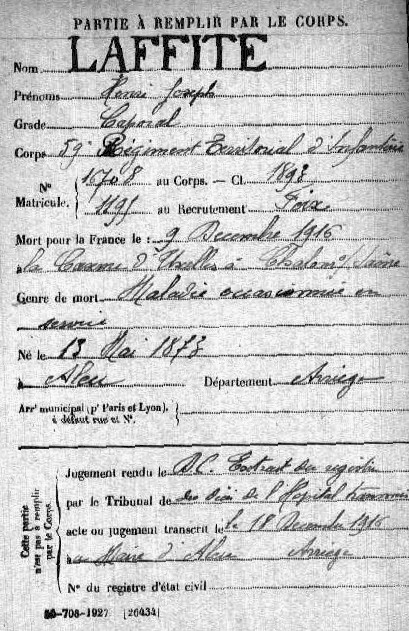 PARTIE À REMPLIR PAR LE CORPS.
Nom LAFFITE
Prénoms Henri Joseph
Grade Caporal
Corps 59e Régiment Territorial d'Infanterie
N° Matricule. 16708 au Corps. — Cl. 1893
1195 au Recrutement Foix
Mort pour la France le 9 Décembre 1916
à la Caserne d'Uxelles à Chalon s/ Saône
Genre de mort Maladie en
service
Né le 13 Mai 1873
à Aleu Département Ariège
Arrt municipal (pr Paris et Lyon),
à défaut rue et N°.
Cette partie n'est pas à remplir par le Corps.
Jugement rendu le D.C. Extrait du registre
par le Tribunal de des de l'Hôpital
acte ou jugement transcrit le le 18 Décembre 1916
à Mairie d'Aleu Ariège
N° du registre d'état civil
-708-1927. [26434]